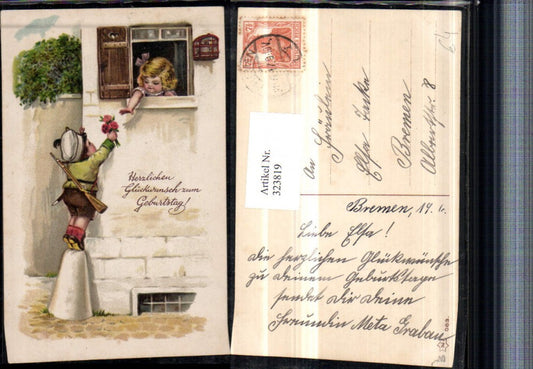 Herzlichen
Glückwunsch zum
Geburtstag!
Artikel Nr.
323819
An Fräulein
Elsa
Bremen
Albertstr. 8
Bremen, 14.
Liebe Elsa!
Die herzlichen Glückwünsche
zu deinem Geburtstage
sendet Dir Deine
Freundin Meta Grabau